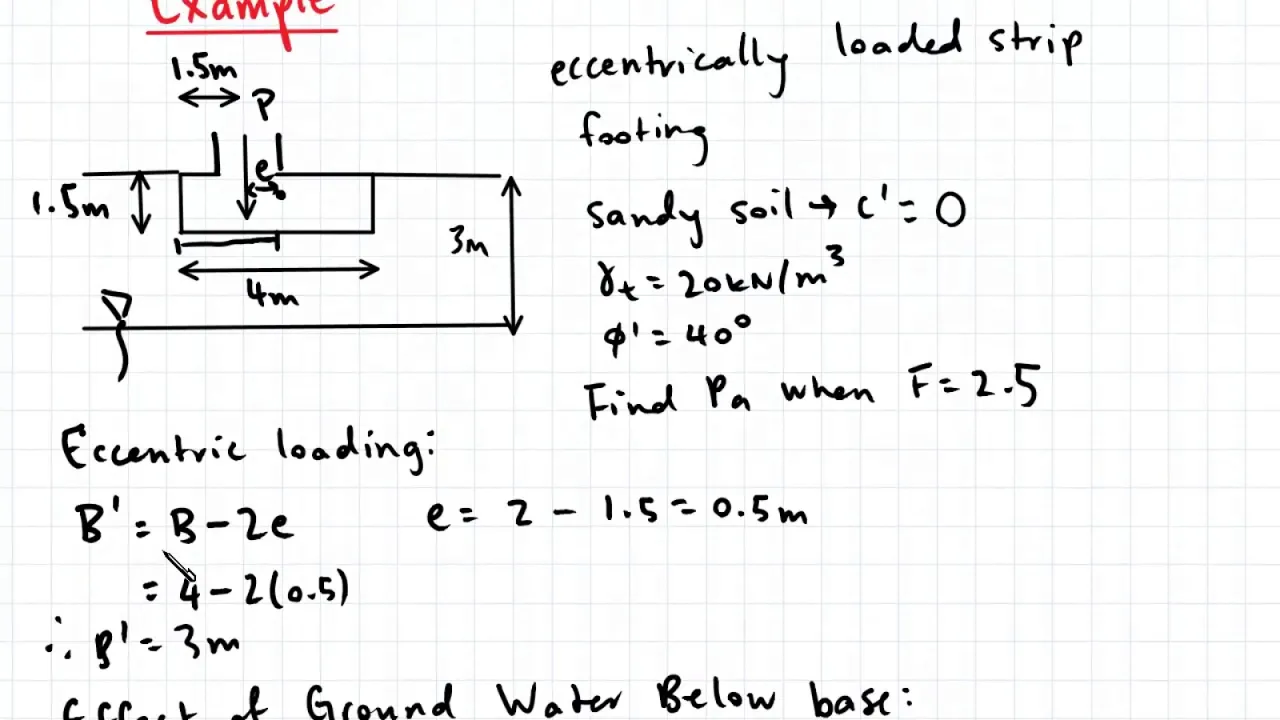 Example
1.5m
P
e
1.5m
3m
4m
eccentrically loaded strip
footing
sandy soil → c' = 0
γt = 20kN/m³
φ' = 40°
Find Pa when F = 2.5
Eccentric loading:
B' = B - 2e
e = 2 - 1.5 = 0.5m
= 4 - 2(0.5)
∴ B' = 3m
Effect of Ground Water Below base: